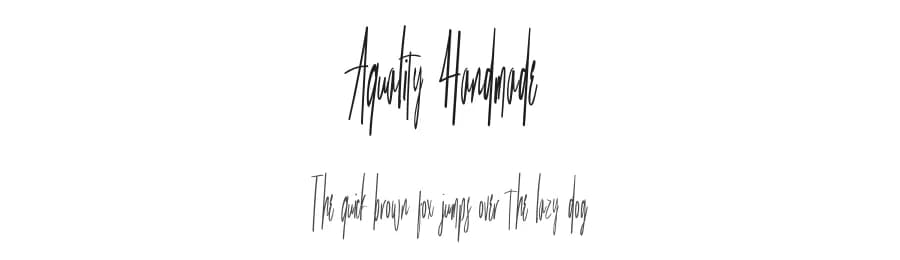 Aquality Handmade
The quick brown fox jumps over the lazy dog